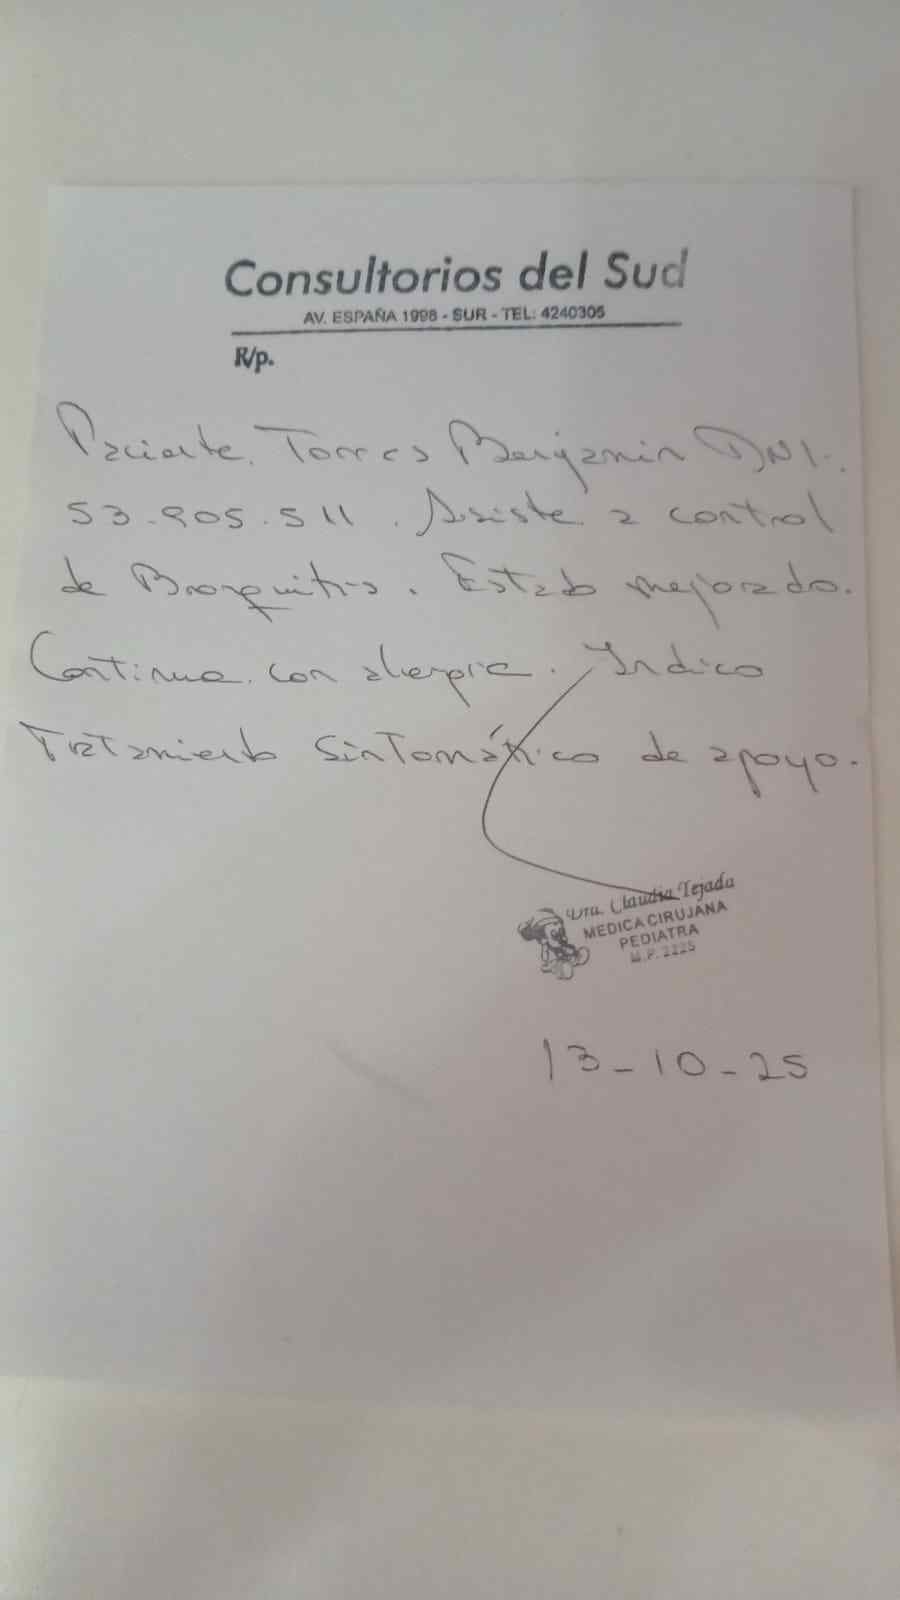 Consultorios del Sud
AV. ESPAÑA 1998 - SUR - TEL: 4240305
R/p.
Paciente. Torres Benjamin DNI.
53.905.511. Asiste a control
de Bronquitis. Estado mejorado.
Continua con alergia. Indico
Tratamiento Sintomático de apoyo.
Dra. Claudia Tejada
MEDICA CIRUJANA
PEDIATRA
M.P. 2225
13-10-25